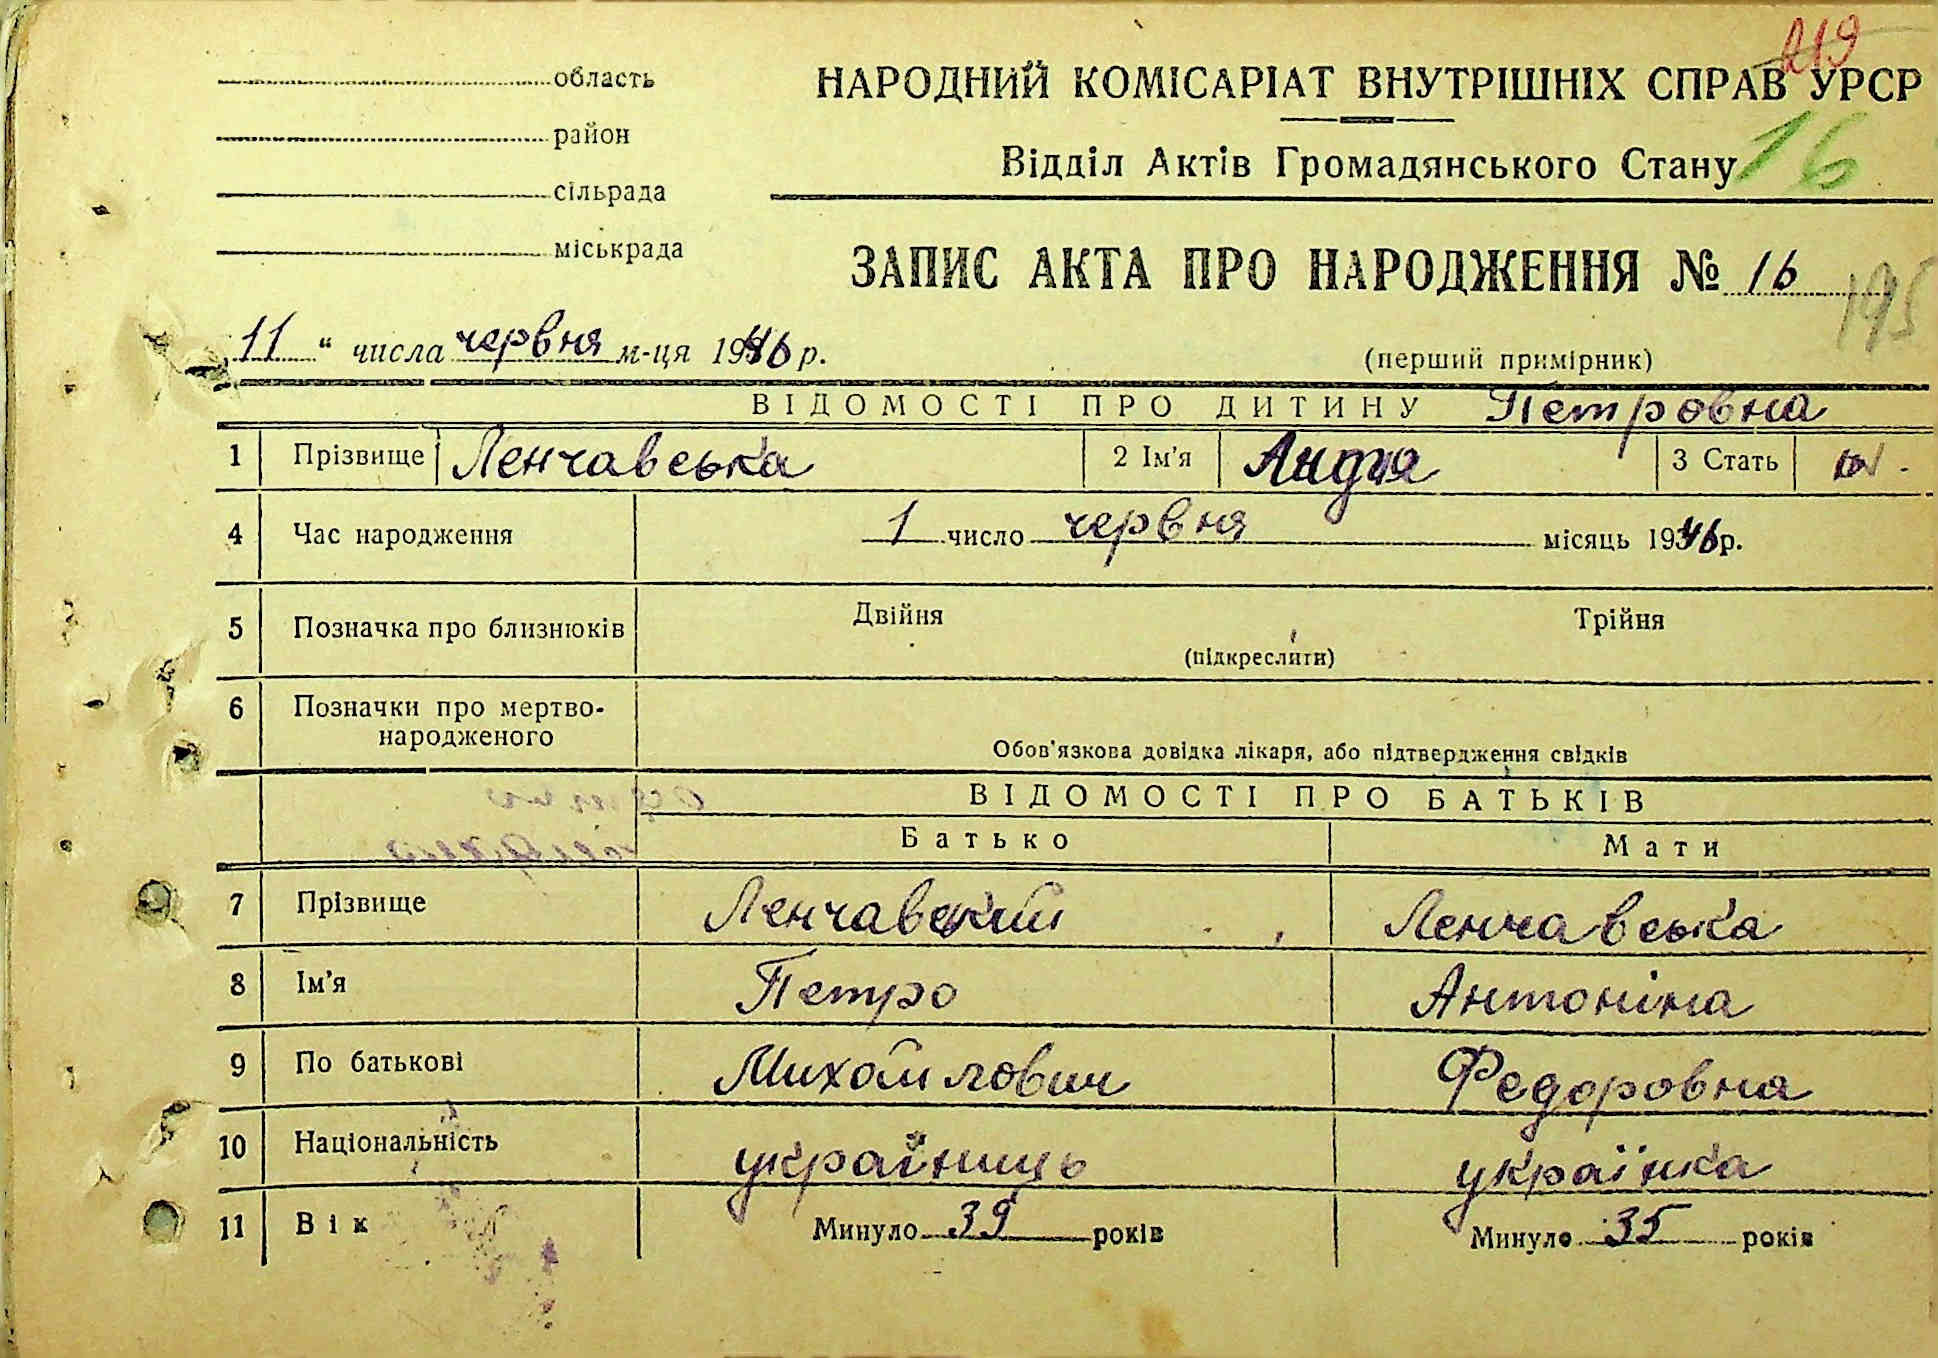 область
район
сільрада
міськрада
219
НАРОДНИЙ КОМІСАРІАТ ВНУТРІШНІХ СПРАВ УРСР
Відділ Актів Громадянського Стану 16
ЗАПИС АКТА ПРО НАРОДЖЕННЯ № 16
195
„11“ числа червня м-ця 1946 р.
(перший примірник)
ВІДОМОСТІ ПРО ДИТИНУ Петровна
1 Прізвище Ленчавська 2 Ім'я 3 Стать
4 Час народження 1 число червня місяць 1946 р.
5 Позначка про близнюків Двійня Трійня
(підкреслити)
6 Позначки про мертво-
народженого
Обов'язкова довідка лікаря, або підтвердження свідків
ВІДОМОСТІ ПРО БАТЬКІВ
Батько Мати
7 Прізвище Ленчавский Ленчавська
8 Ім'я Петро Антоніна
9 По батькові Михайлович Федоровна
10 Національність українць українка
11 Вік Минуло 39 років Минуло 35 років